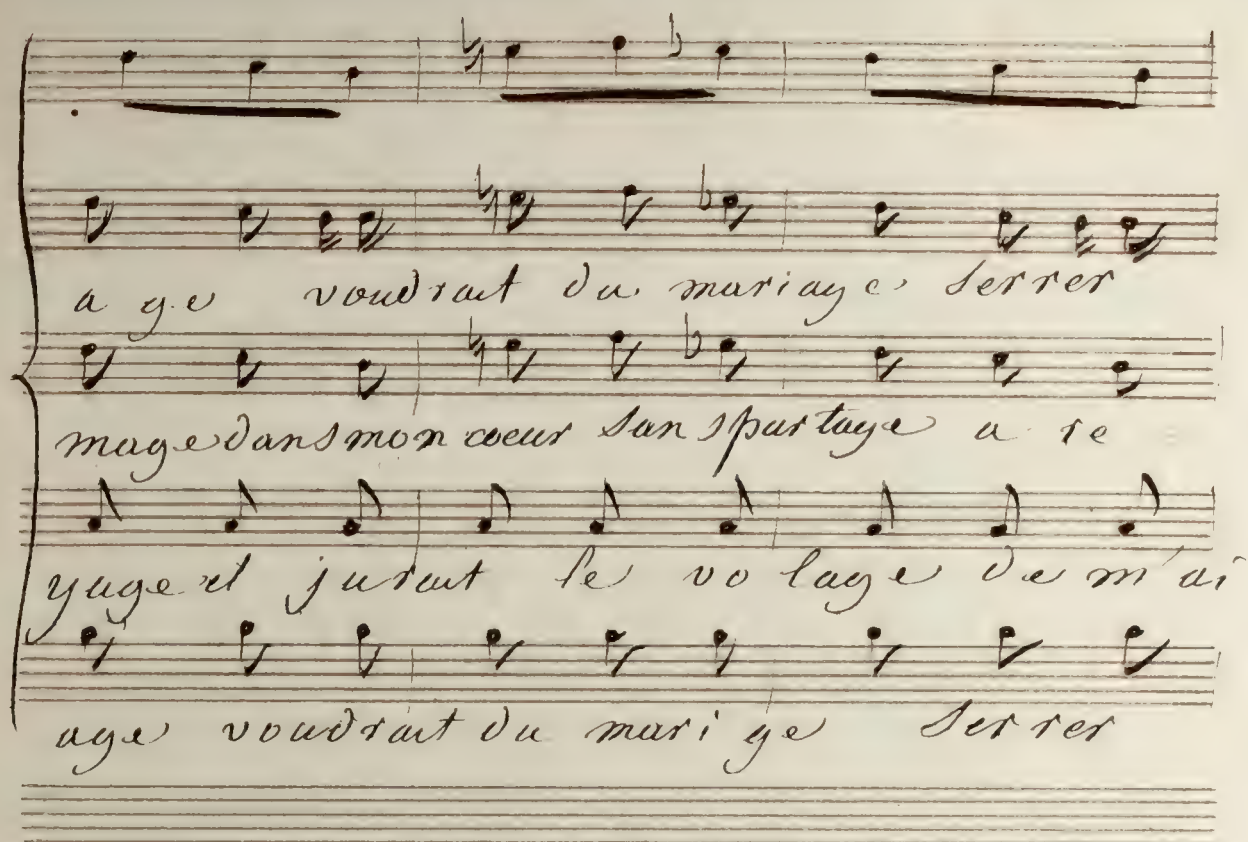 a ge voudrait du mariage serrer
mage dans mon coeur sans partage a re
yage et jurait le volage de m'ai
age voudrait du mari ge serrer